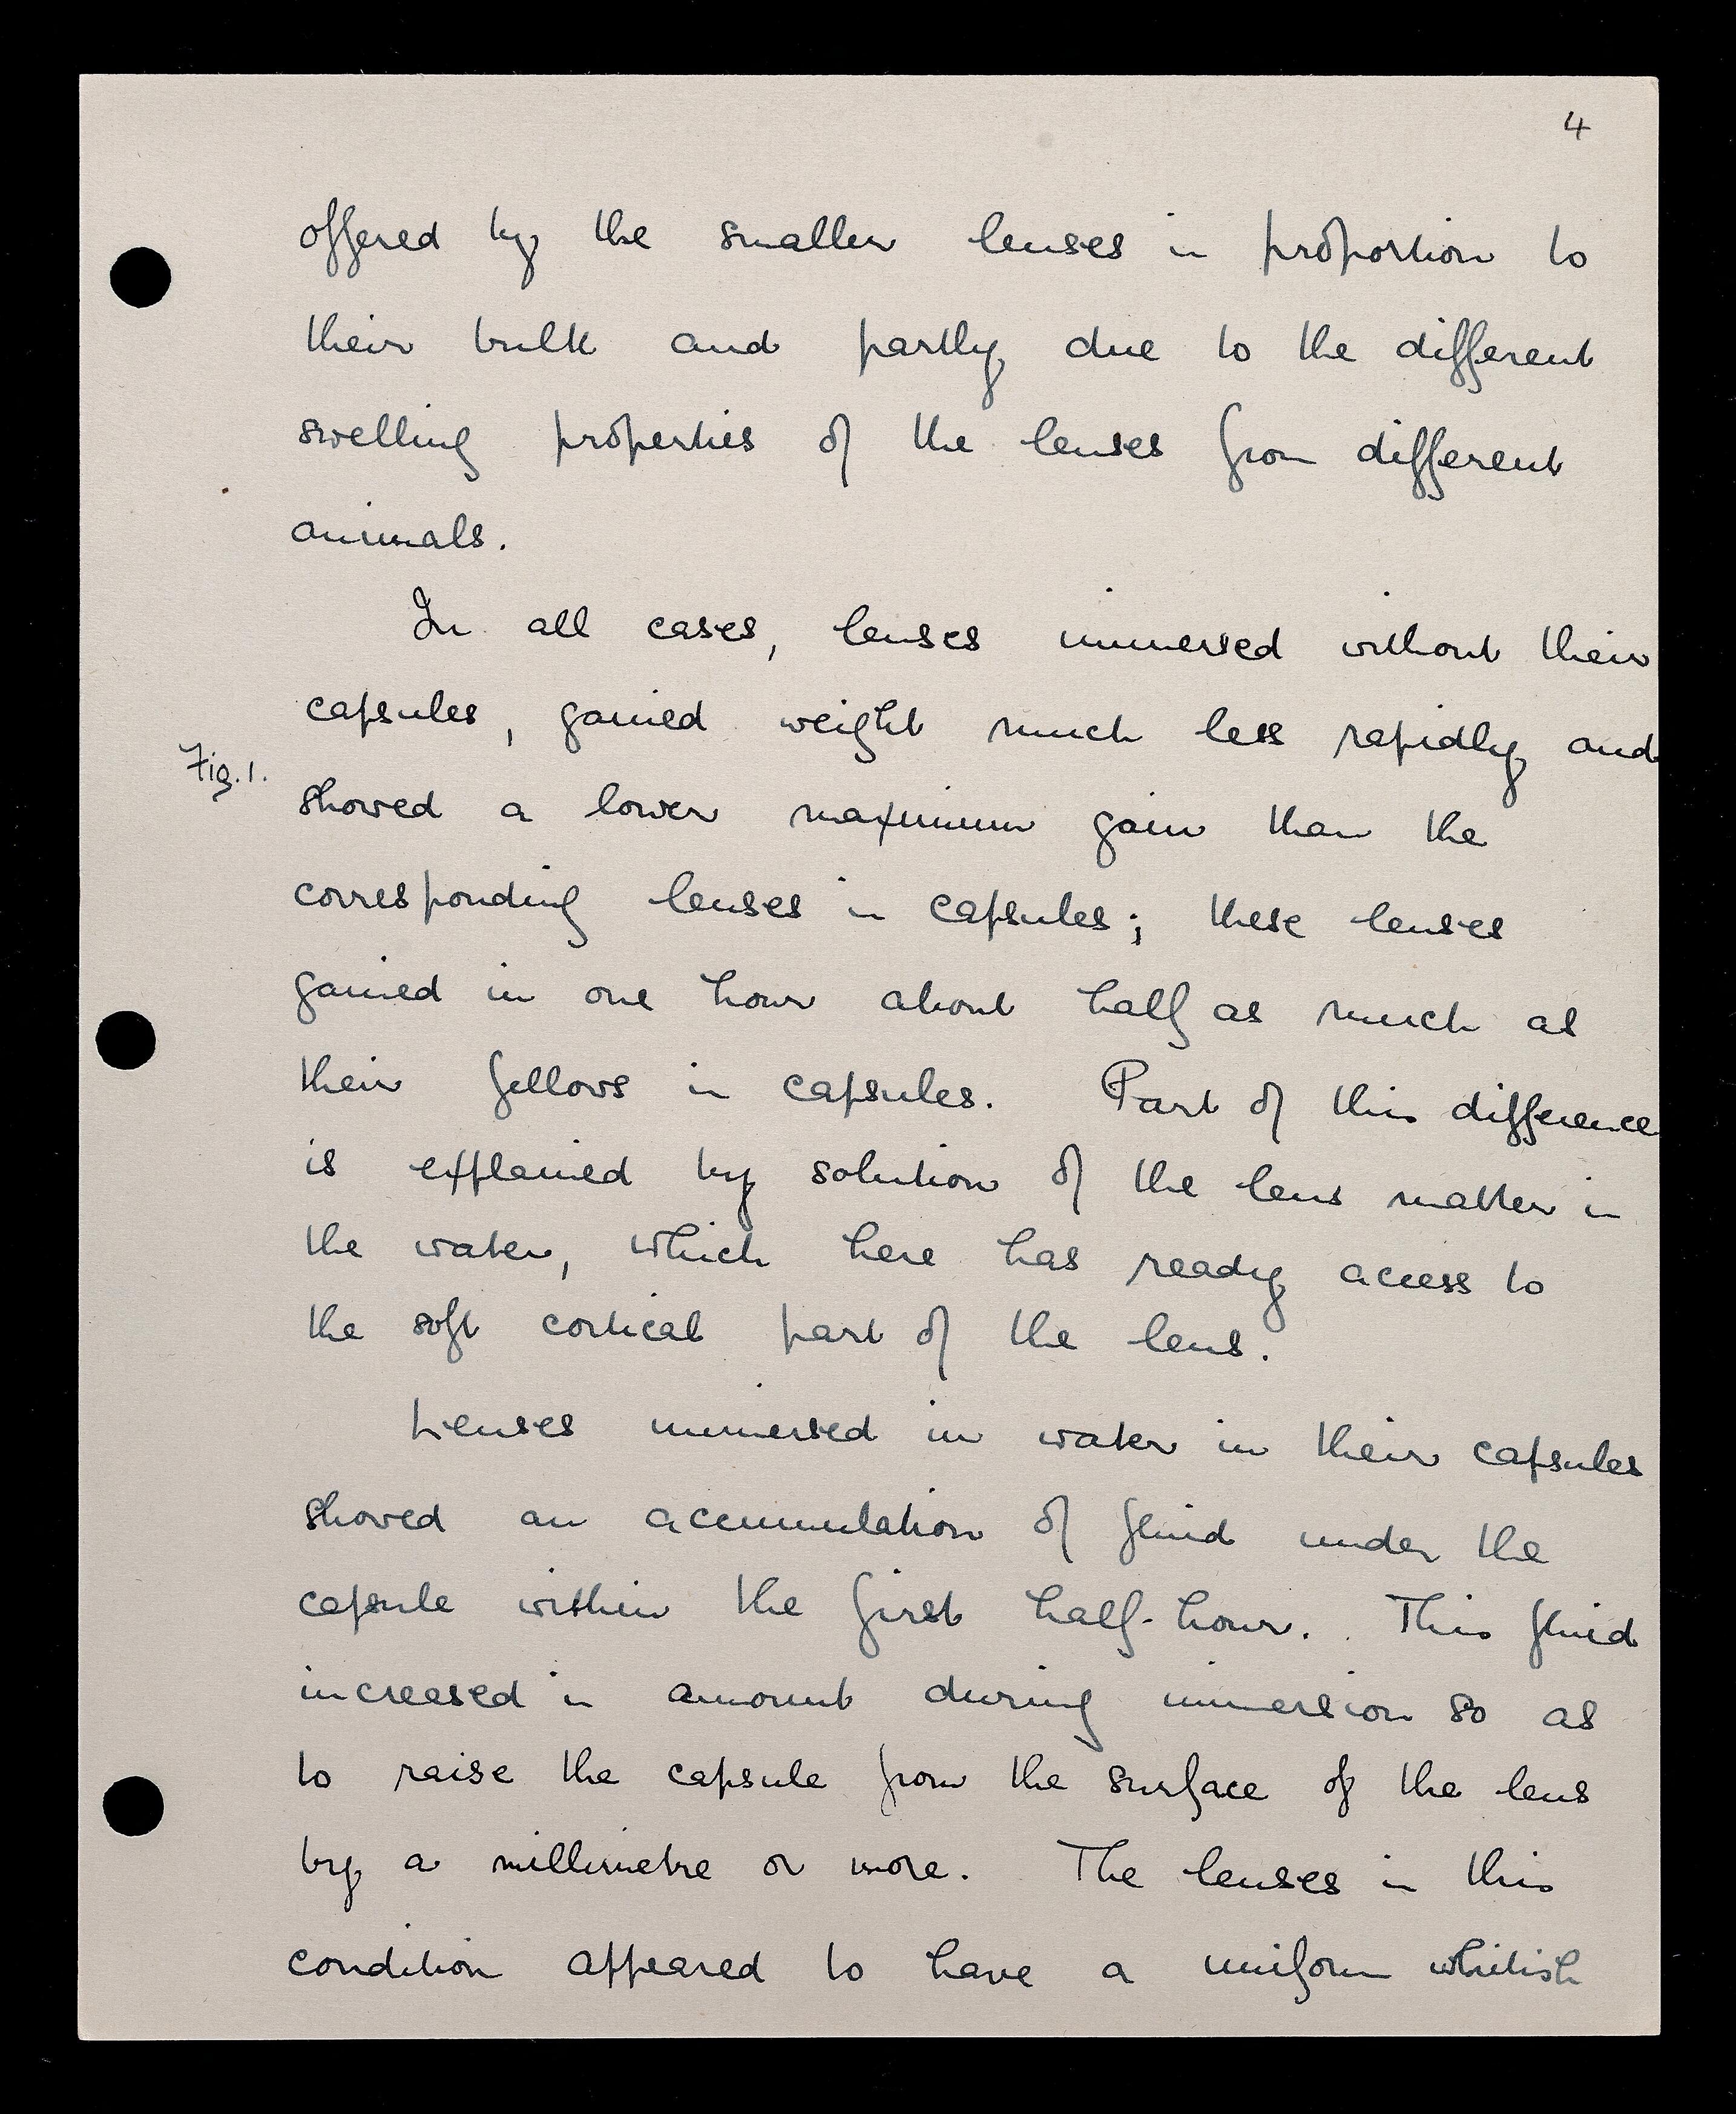 4
offered by the smaller lenses in proportion to
their bulk and partly due to the different
swelling properties of the lenses from different
animals.
In all cases, lenses immersed without their
capsules, gained weight much less rapidly and
Fig. 1.
showed a lower maximum gain than the
corresponding lenses in capsules; these lenses
gained in one hour about half as much as
their fellows in capsules. Part of this difference
is explained by solution of the lens matter in
the water, which here has ready access to
the soft cortical part of the lens.
Lenses immersed in water in their capsules
showed an accumulation of fluid under the
capsule within the first half-hour. This fluid
increased in amount during immersion so as
to raise the capsule from the surface of the lens
by a millimetre or more. The lenses in this
condition appeared to have a uniform whitish